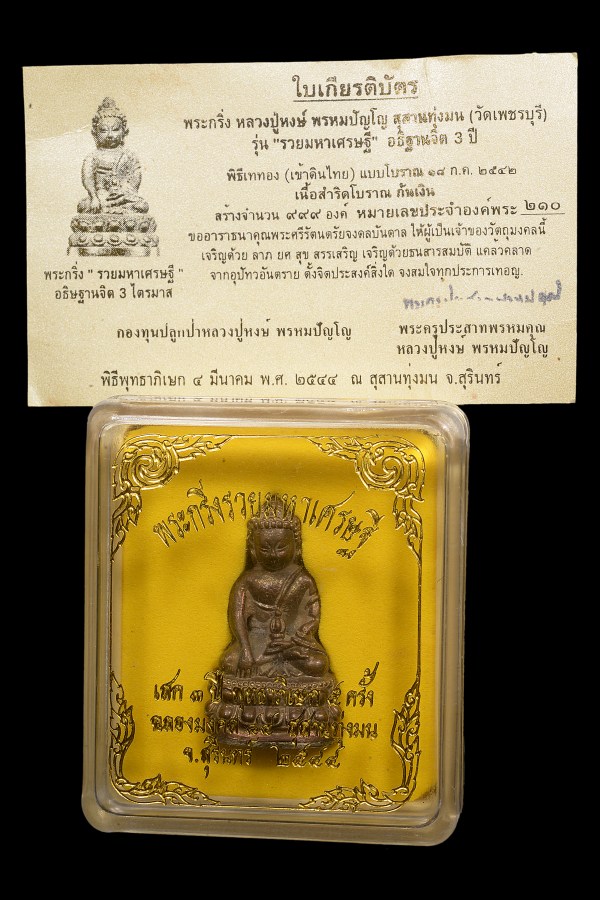 ใบเกียรติบัตร
พระกริ่ง หลวงปู่หงษ์ พรหมปัญโญ สุสานทุ่งมน (วัดเพชรบุรี)
รุ่น "รวยมหาเศรษฐี" อธิฐานจิต 3 ปี
พิธีเททอง (เข้าดินไทย) แบบโบราณ ๑๘ ก.ค. ๒๕๔๒
เนื้อสำริดโบราณ ก้นเงิน
สร้างจำนวน ๙๙๙ องค์ หมายเลขประจำองค์พระ ๒๑๐
ขออาราธนาคุณพระศรีรัตนตรัยจงดลบันดาล ให้ผู้เป็นเจ้าของวัตถุมงคลนี้
เจริญด้วย ลาภ ยศ สุข สรรเสริญ เจริญด้วยธนสารสมบัติ แคล้วคลาด
จากอุปัทวอันตราย ตั้งจิตประสงค์สิ่งใด จงสมใจทุกประการเทอญ.
พระกริ่ง " รวยมหาเศรษฐี "
อธิษฐานจิต 3 ไตรมาส
กองทุนปลูกป่าหลวงปู่หงษ์ พรหมปัญโญ
พระครูประสาทพรหมคุณ
หลวงปู่หงษ์ พรหมปัญโญ
พิธีพุทธาภิเษก ๔ มีนาคม พ.ศ. ๒๕๔๔ ณ สุสานทุ่งมน จ.สุรินทร์
พระกริ่งรวยมหาเศรษฐี
เสก ๓ ปี พุทธาภิเษก ๕ ครั้ง
ฉลองมงคล สุสานทุ่งมน
จ.สุรินทร์ ๒๕๔๔